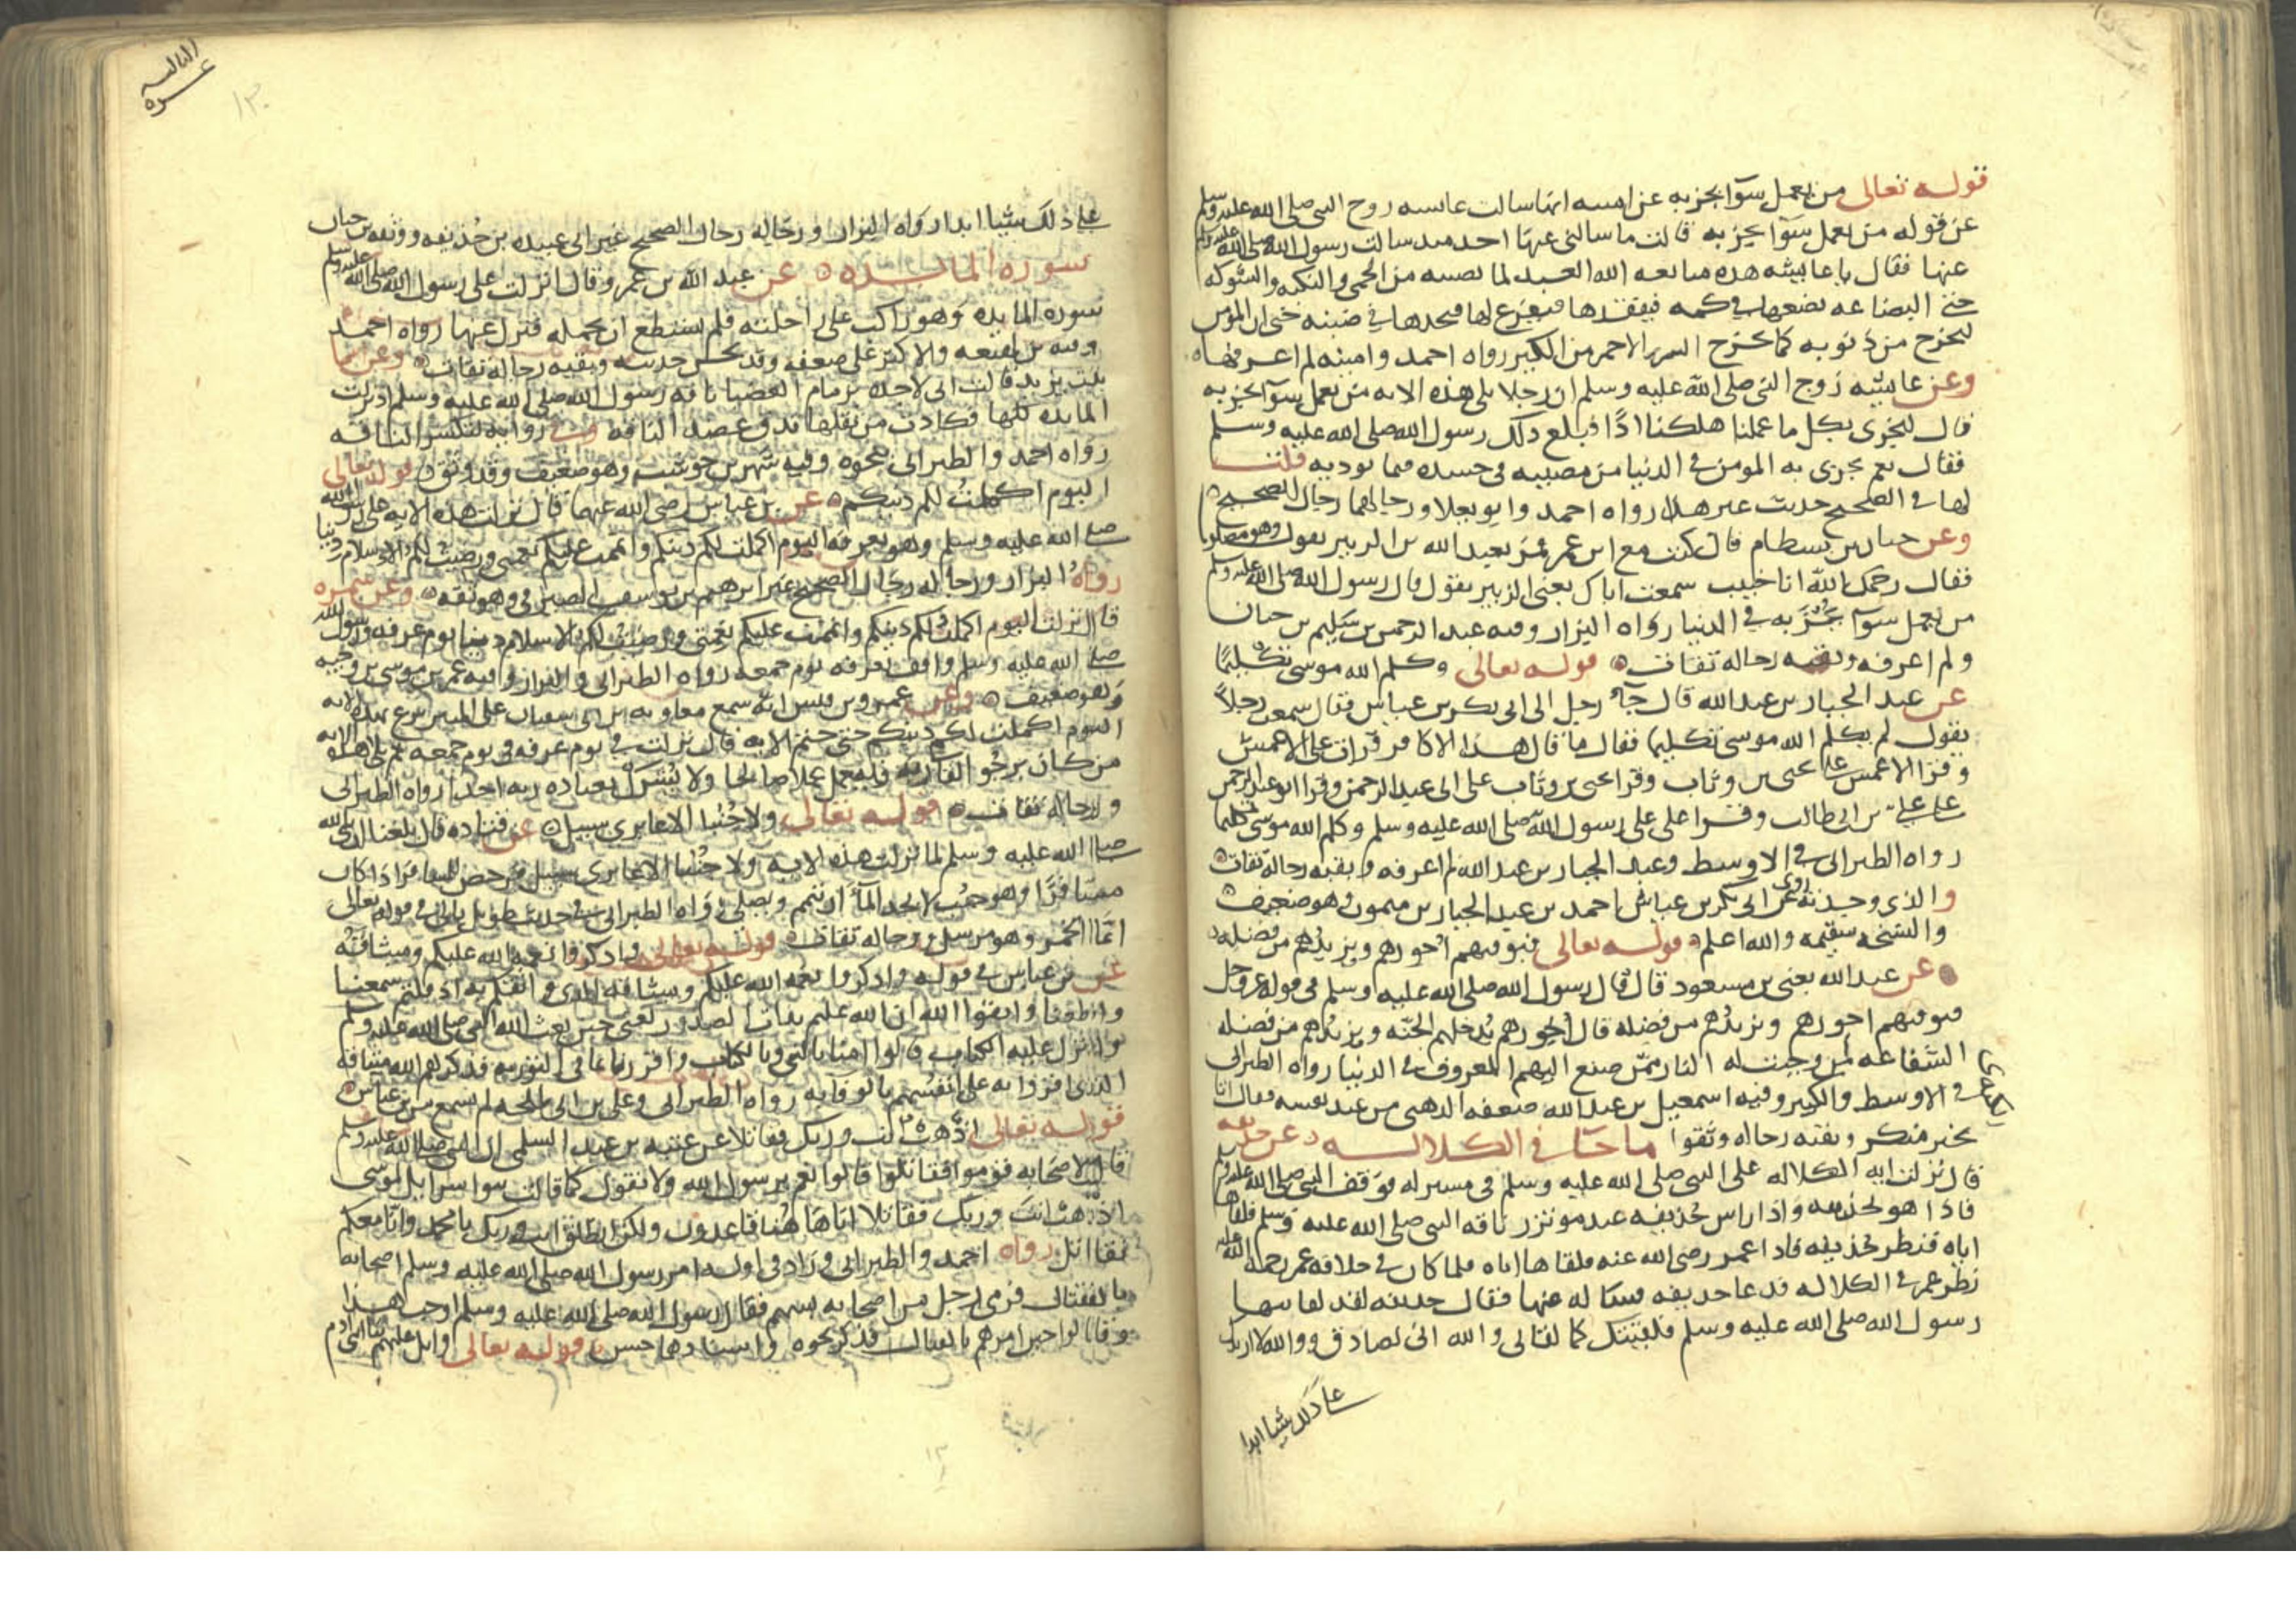 قوله تعالى من يعمل سوا يجز به عن امينه انها سالت عايشه زوج النبي صلى الله عليه وسلم
عن قوله من يعمل سوا يجز به قالت ما سالني عنها احد منذ سالت رسول الله صلى الله عليه وسلم
عنها فقال يا عايشه هذه مبايعه الله العبد لما يصيبه من الحمى والنكبه والشوكه
حتى البضاعه يضعها في كمه فيفقدها فيفزع لها فيجدها في ضبنه حتى ان المومن
ليخرج من ذنوبه كما يخرج التبر الاحمر من الكير رواه احمد وامينه لم اعرفها
وعن عايشه زوج النبي صلى الله عليه وسلم ان رجلا تلى هذه الايه من يعمل سوا يجز به
قال لنجزى بكل ما عملنا هلكنا اذا فبلغ ذلك رسول الله صلى الله عليه وسلم
فقال نعم يجزى به المومن في الدنيا من مصيبه في جسده فما يوذيه قلت
لها في الصحيح حديث غير هذا رواه احمد وابو يعلا ورجالهما رجال الصحيح
وعن حيان بن بسطام قال كنت مع ابن عمر فمر بعبد الله بن الزبير وهو مصلوب
فقال رحمك الله ابا خبيب سمعت اباك يعني الزبير يقول قال رسول الله صلى الله عليه وسلم
من يعمل سوا يجز به في الدنيا رواه البزار وفيه عبد الرحمن بن سليم بن حيان
ولم اعرفه وبقيه رجاله ثقات قوله تعالى وكلم الله موسى تكليما
عن عبد الجبار بن عبد الله قال جا رجل الى ابي بكر بن عياش فقال سمعت رجلا
يقول لم يكلم الله موسى تكليما فقال ما قال هذا الا كافر قرات على الاعمش
وقرا الاعمش على يحيى بن وثاب وقرا يحيى بن وثاب على ابي عبد الرحمن وقرا ابو عبد الرحمن
على علي بن ابي طالب وقرا علي على رسول الله صلى الله عليه وسلم وكلم الله موسى تكليما
رواه الطبراني في الاوسط وعبد الجبار بن عبد الله لم اعرفه وبقيه رجاله ثقات
والذي وجدته روى عن ابي بكر بن عياش احمد بن عبد الجبار بن ميمون وهو ضعيف
والنسخه سقيمه والله اعلم قوله تعالى فيوفيهم اجورهم ويزيدهم من فضله
عن عبد الله يعني بن مسعود قال قال رسول الله صلى الله عليه وسلم في قوله عز وجل
فيوفيهم اجورهم ويزيدهم من فضله قال اجورهم يدخلهم الجنه ويزيدهم من فضله
الشفاعه لمن وجبت له النار ممن صنع اليهم المعروف في الدنيا رواه الطبراني
في الاوسط والكبير وفيه اسمعيل بن عبد الله ضعفه الذهبي من عند نفسه فقال اتا
بخبر منكر وبقيه رجاله وثقوا ما جا في الكلاله عن حذيفه
قال نزلت ايه الكلاله على النبي صلى الله عليه وسلم في مسير له فوقف النبي صلى الله عليه وسلم
فاذا هو بحذيفه واذا راس حذيفه عند موتزر ناقه النبي صلى الله عليه وسلم فلقاها
اياه فنظر حذيفه فاذا عمر رضى الله عنه فلقاها اياه فلما كان في خلافه عمر رحمه الله
نظر عمر في الكلاله فدعا حذيفه فساله عنها فقال حذيفه لقد لقانيها
رسول الله صلى الله عليه وسلم فلقيتك كما لقاني والله اني لصادق ووالله لا ازيدك
على ذلك شيا ابدا
الثالثه
عشره
١٣٠
على ذلك شيا ابدا رواه البزار ورجاله رجال الصحيح غير ابي عبيده بن حذيفه ووثقه بن حبان
سوره المايده عن عبد الله بن عمرو قال انزلت على رسول الله صلى الله عليه وسلم
سوره المايده وهو راكب على راحلته فلم يستطع ان يحمله فنزل عنها رواه احمد
وفيه بن لهيعه والاكثر على ضعفه وقد يحسن حديثه وبقيه رجاله ثقات وعن اسما
بنت يزيد قالت اني لاخذه بزمام العضبا ناقه رسول الله صلى الله عليه وسلم اذ نزلت
المايده كلها فكادت من ثقلها تدق عضد الناقه وفي روايه لتكسر الناقه
رواه احمد والطبراني بنحوه وفيه شهر بن حوشب وهو ضعيف وقد وثق قوله تعالى
اليوم اكملت لكم دينكم عن بن عباس رضى الله عنهما قال نزلت هذه الايه على رسول الله
صلى الله عليه وسلم وهو بعرفه اليوم اكملت لكم دينكم واتممت عليكم نعمتي ورضيت لكم الاسلام دينا
رواه البزار ورجاله رجال الصحيح غير ابرهيم بن يوسف الصيرفي وهو ثقه وعن سمره
قال نزلت اليوم اكملت لكم دينكم واتممت عليكم نعمتي ورضيت لكم الاسلام دينا يوم عرفه ورسول الله
صلى الله عليه وسلم واقف بعرفه يوم جمعه رواه الطبراني والبزار وفيه عمر بن موسى بن وجيه
وهو ضعيف وعن عمرو بن قيس انه سمع معاويه بن ابي سفيان على المنبر نزع بهذه الايه
اليوم اكملت لكم دينكم حتى ختم الايه قال نزلت في يوم عرفه في يوم جمعه ثم تلا هذه الايه
من كان يرجوا لقا ربه فليعمل عملا صالحا ولا يشرك بعباده ربه احدا رواه الطبراني
ورجاله ثقات قوله تعالى ولا جنبا الا عابري سبيل عن قتاده قال بلغنا ان نبي الله
صلى الله عليه وسلم لما نزلت هذه الايه ولا جنبا الا عابري سبيل فرخص للمسافر اذا كان
مسافرا وهو جنب لا يجد الما ان يتيمم ويصلي رواه الطبراني في حديث طويل ياتي في قوله تعالى
انما الخمر وهو مرسل ورجاله ثقات قوله تعالى واذكروا نعمه الله عليكم وميثاقه
عن بن عباس في قوله واذكروا نعمه الله عليكم وميثاقه الذي واثقكم به اذ قلتم سمعنا
واطعنا واتقوا الله ان الله عليم بذات الصدور يعني حين بعث الله النبي صلى الله عليه وسلم
وانزل عليه الكتاب قالوا امنا بالنبي وبالكتاب واقررنا بما في التوريه فذكرهم الله ميثاقه
الذي اقروا به على انفسهم بالوفا به رواه الطبراني وعلي بن ابي طلحه لم يسمع من بن عباس
قوله تعالى اذهب انت وربك فقاتلا عن عتبه بن عبد السلمي ان النبي صلى الله عليه وسلم
قال لاصحابه قوموا فقاتلوا قالوا نعم يرسول الله ولا نقول كما قالت بنوا اسرايل لموسى
اذهب انت وربك فقاتلا انا هاهنا قاعدون ولكن انطلق انت وربك يا محمد وانا معكم
نقاتل رواه احمد والطبراني وزاد في اوله امر رسول الله صلى الله عليه وسلم اصحابه
بالقتال فرمى رجل من اصحابه بسهم فقال رسول الله صلى الله عليه وسلم اوجب هذا
وقالوا حين امرهم بالقتال فذكر نحوه واسنادها حسن قوله تعالى واتل عليهم نبا ابني ادم